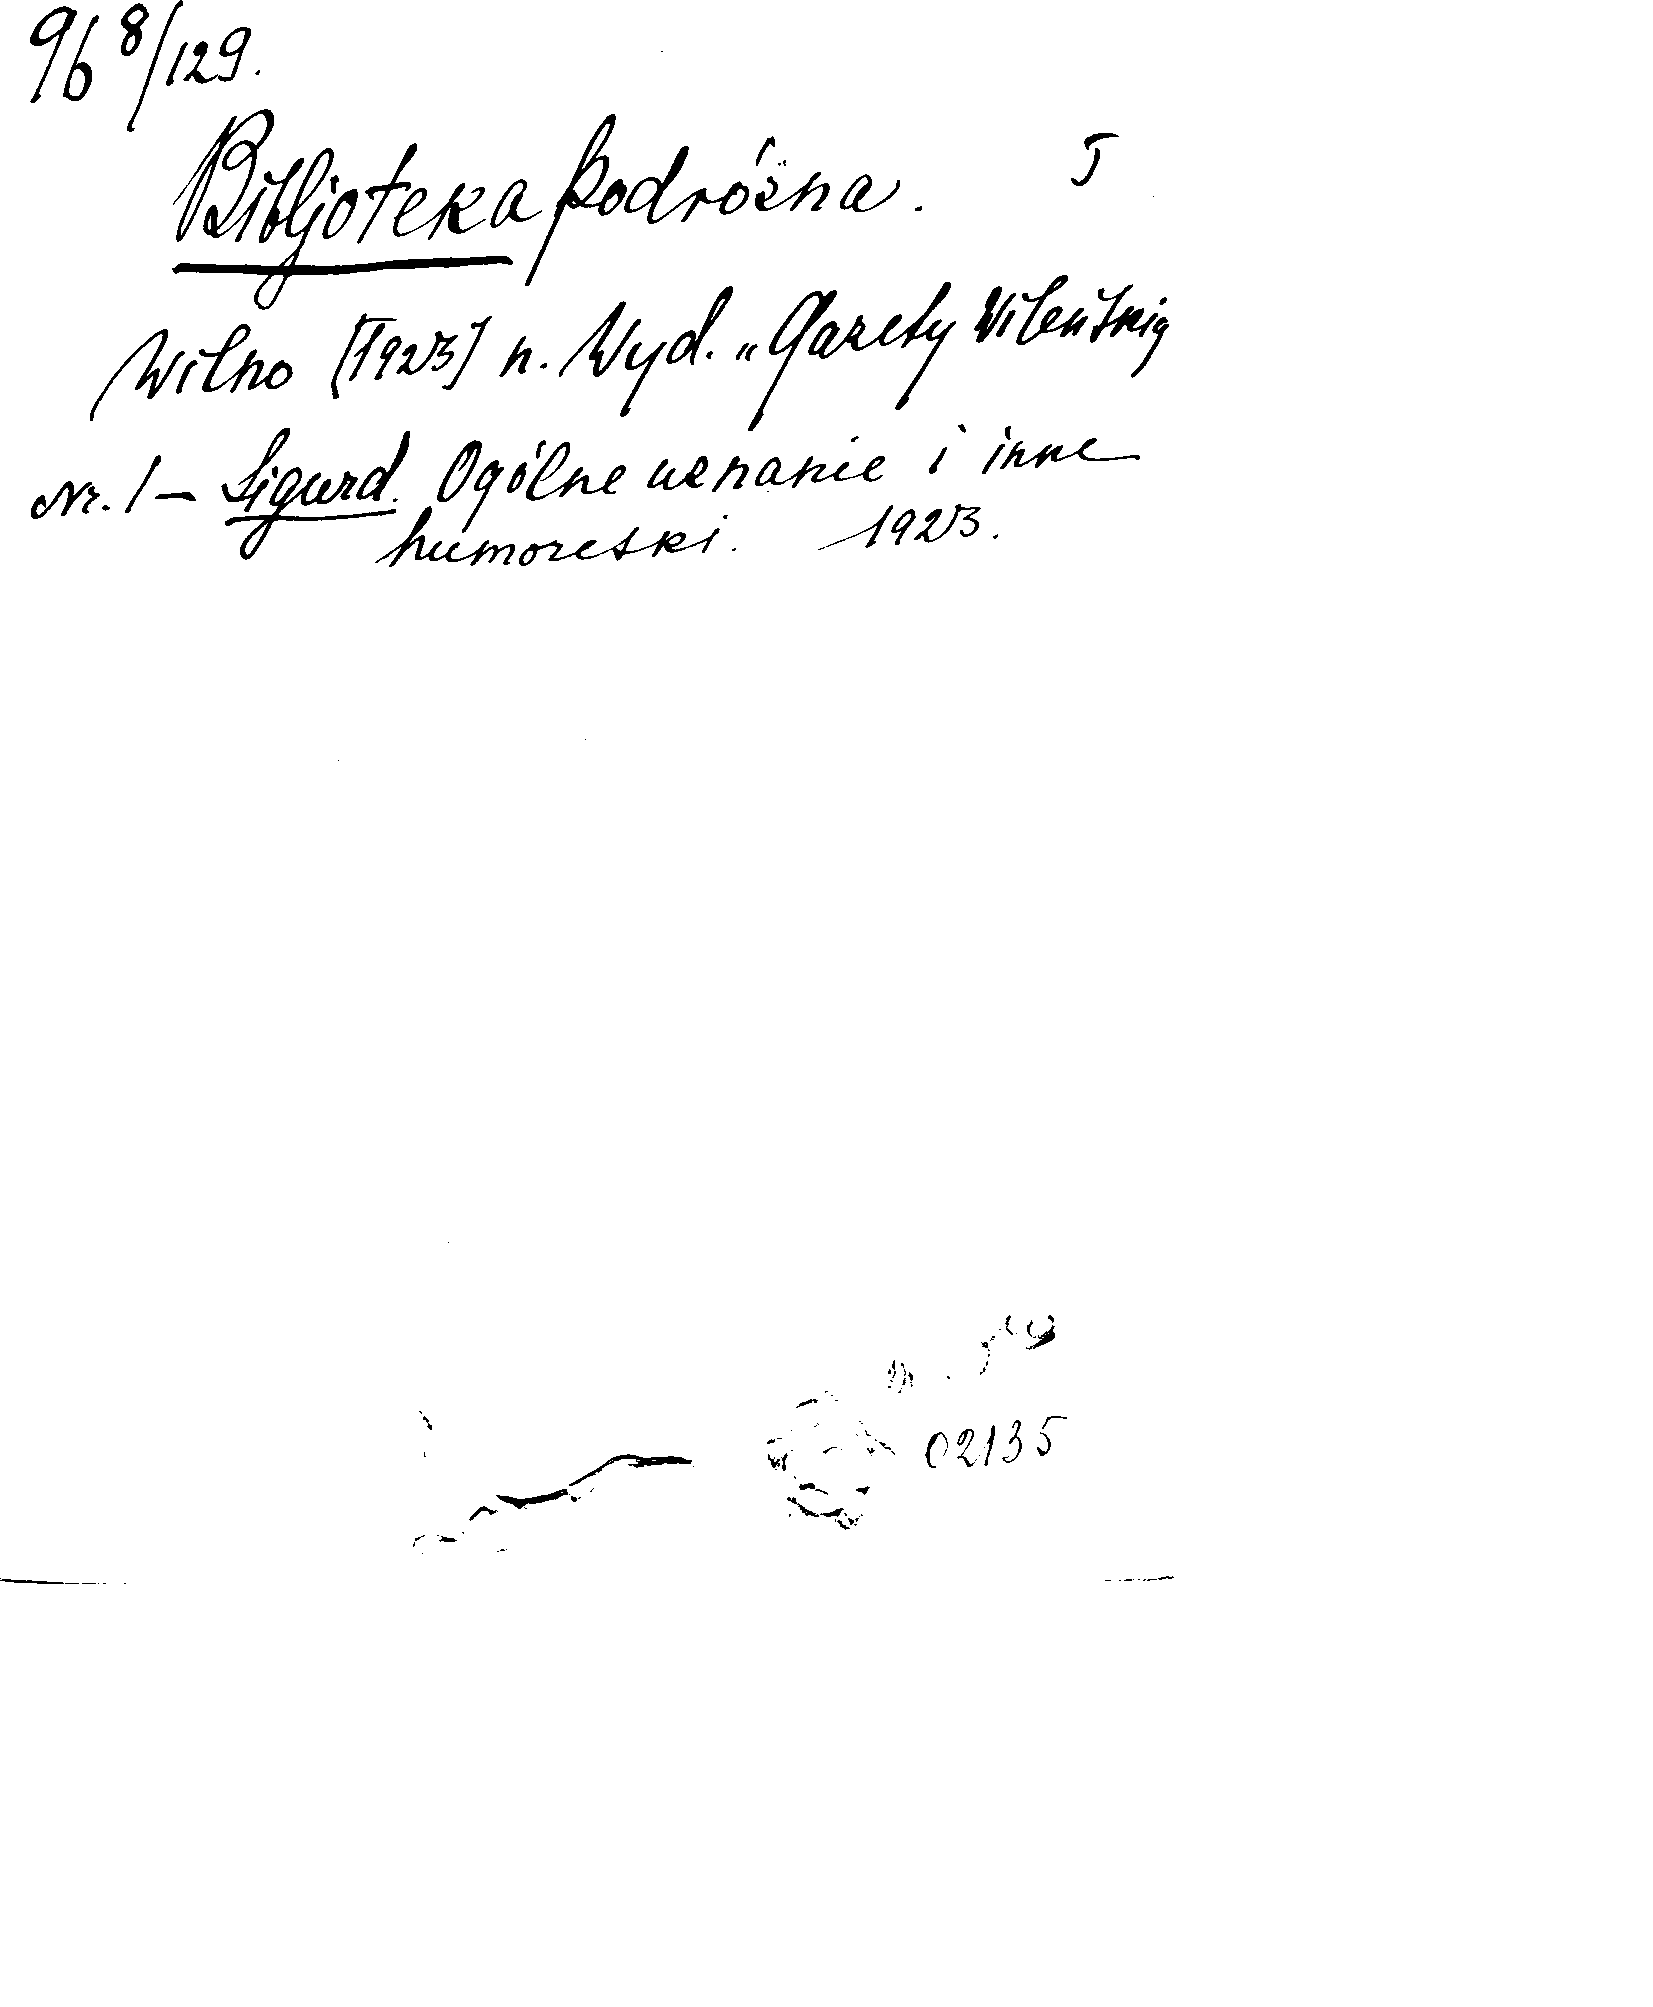 96 8/129.
Bibljoteka podróżna. I
Wilno [1923] n. Wyd. „Gazety Wileńskiej
Nr. 1 – Sigurd. Ogólne uznanie i inne
humoreski. 1923.
02135